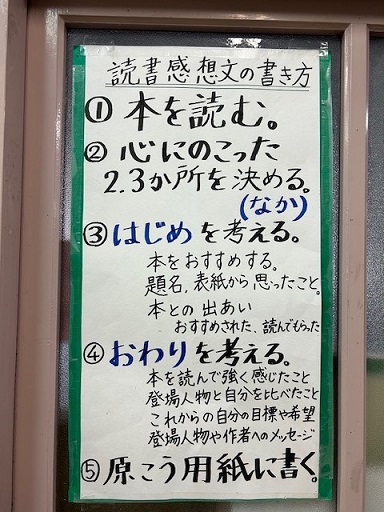 読書感想文の書き方
① 本を読む。
② 心にのこった
2.3か所を決める。
(なか)
③ はじめを考える。
本をおすすめする。
題名,表紙から思ったこと。
本との出あい
おすすめされた、読んでもらった
④ おわりを考える。
本を読んで強く感じたこと
登場人物と自分を比べたこと
これからの自分の目標や希望
登場人物や作者へのメッセージ
⑤ 原こう用紙に書く。